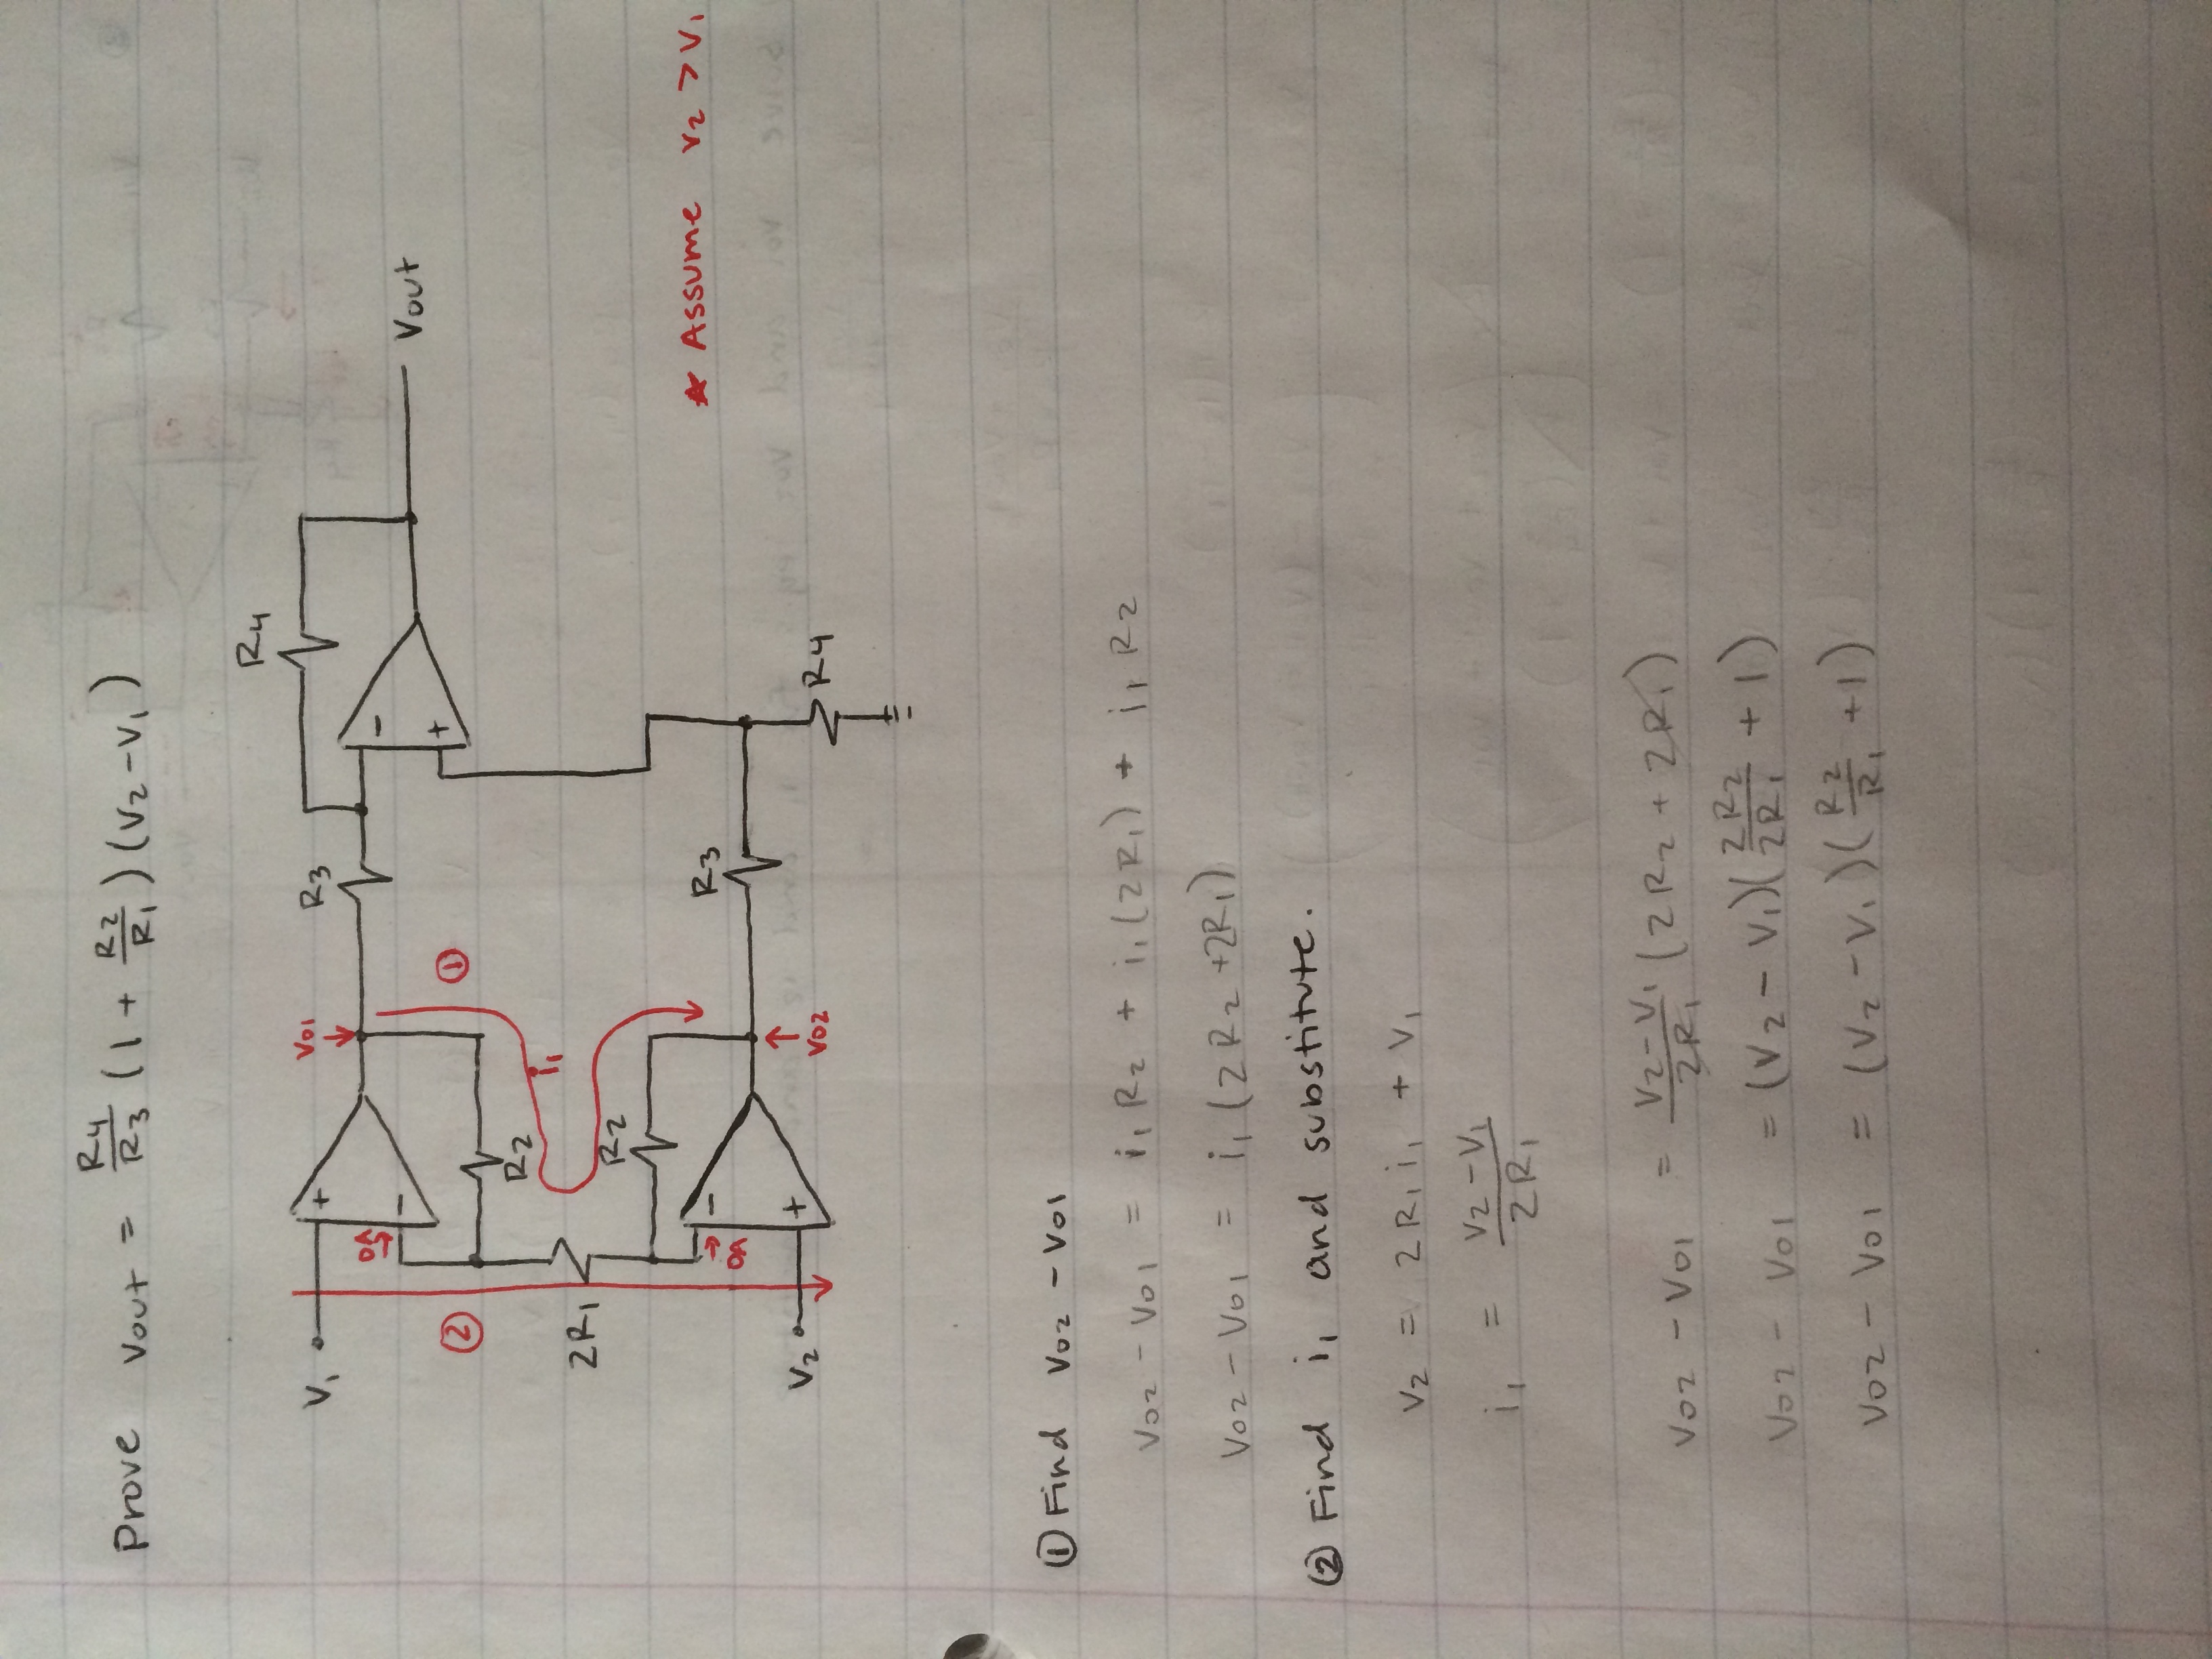 Prove Vout = R4/R3 (1 + R2/R1) (V2 - V1)
R4
V1 + Vo1 R3
0A - - Vout
② ① +
R2
i1
2R1
R2
- R3 * Assume V2 > V1
0A
V2 + Vo2 R4
① Find Vo2 - Vo1
Vo2 - Vo1 = i1 R2 + i1 (2R1) + i1 R2
Vo2 - Vo1 = i1 (2R2 + 2R1)
② Find i1 and substitute.
V2 = 2R1 i1 + V1
i1 = V2 - V1 / 2R1
Vo2 - Vo1 = V2 - V1 / 2R1 (2R2 + 2R1)
Vo2 - Vo1 = (V2 - V1)(2R2/2R1 + 1)
Vo2 - Vo1 = (V2 - V1)(R2/R1 + 1)